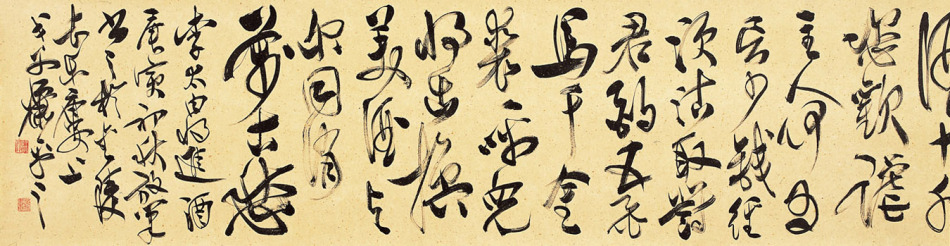 酒十千
恣歡謔
主人何為
言少錢徑
須沽取對
君酌五花
馬千金
裘呼兒
將出換
美酒與
爾同消
萬古愁
李太白將進酒
庚寅初秋
書之於金陵